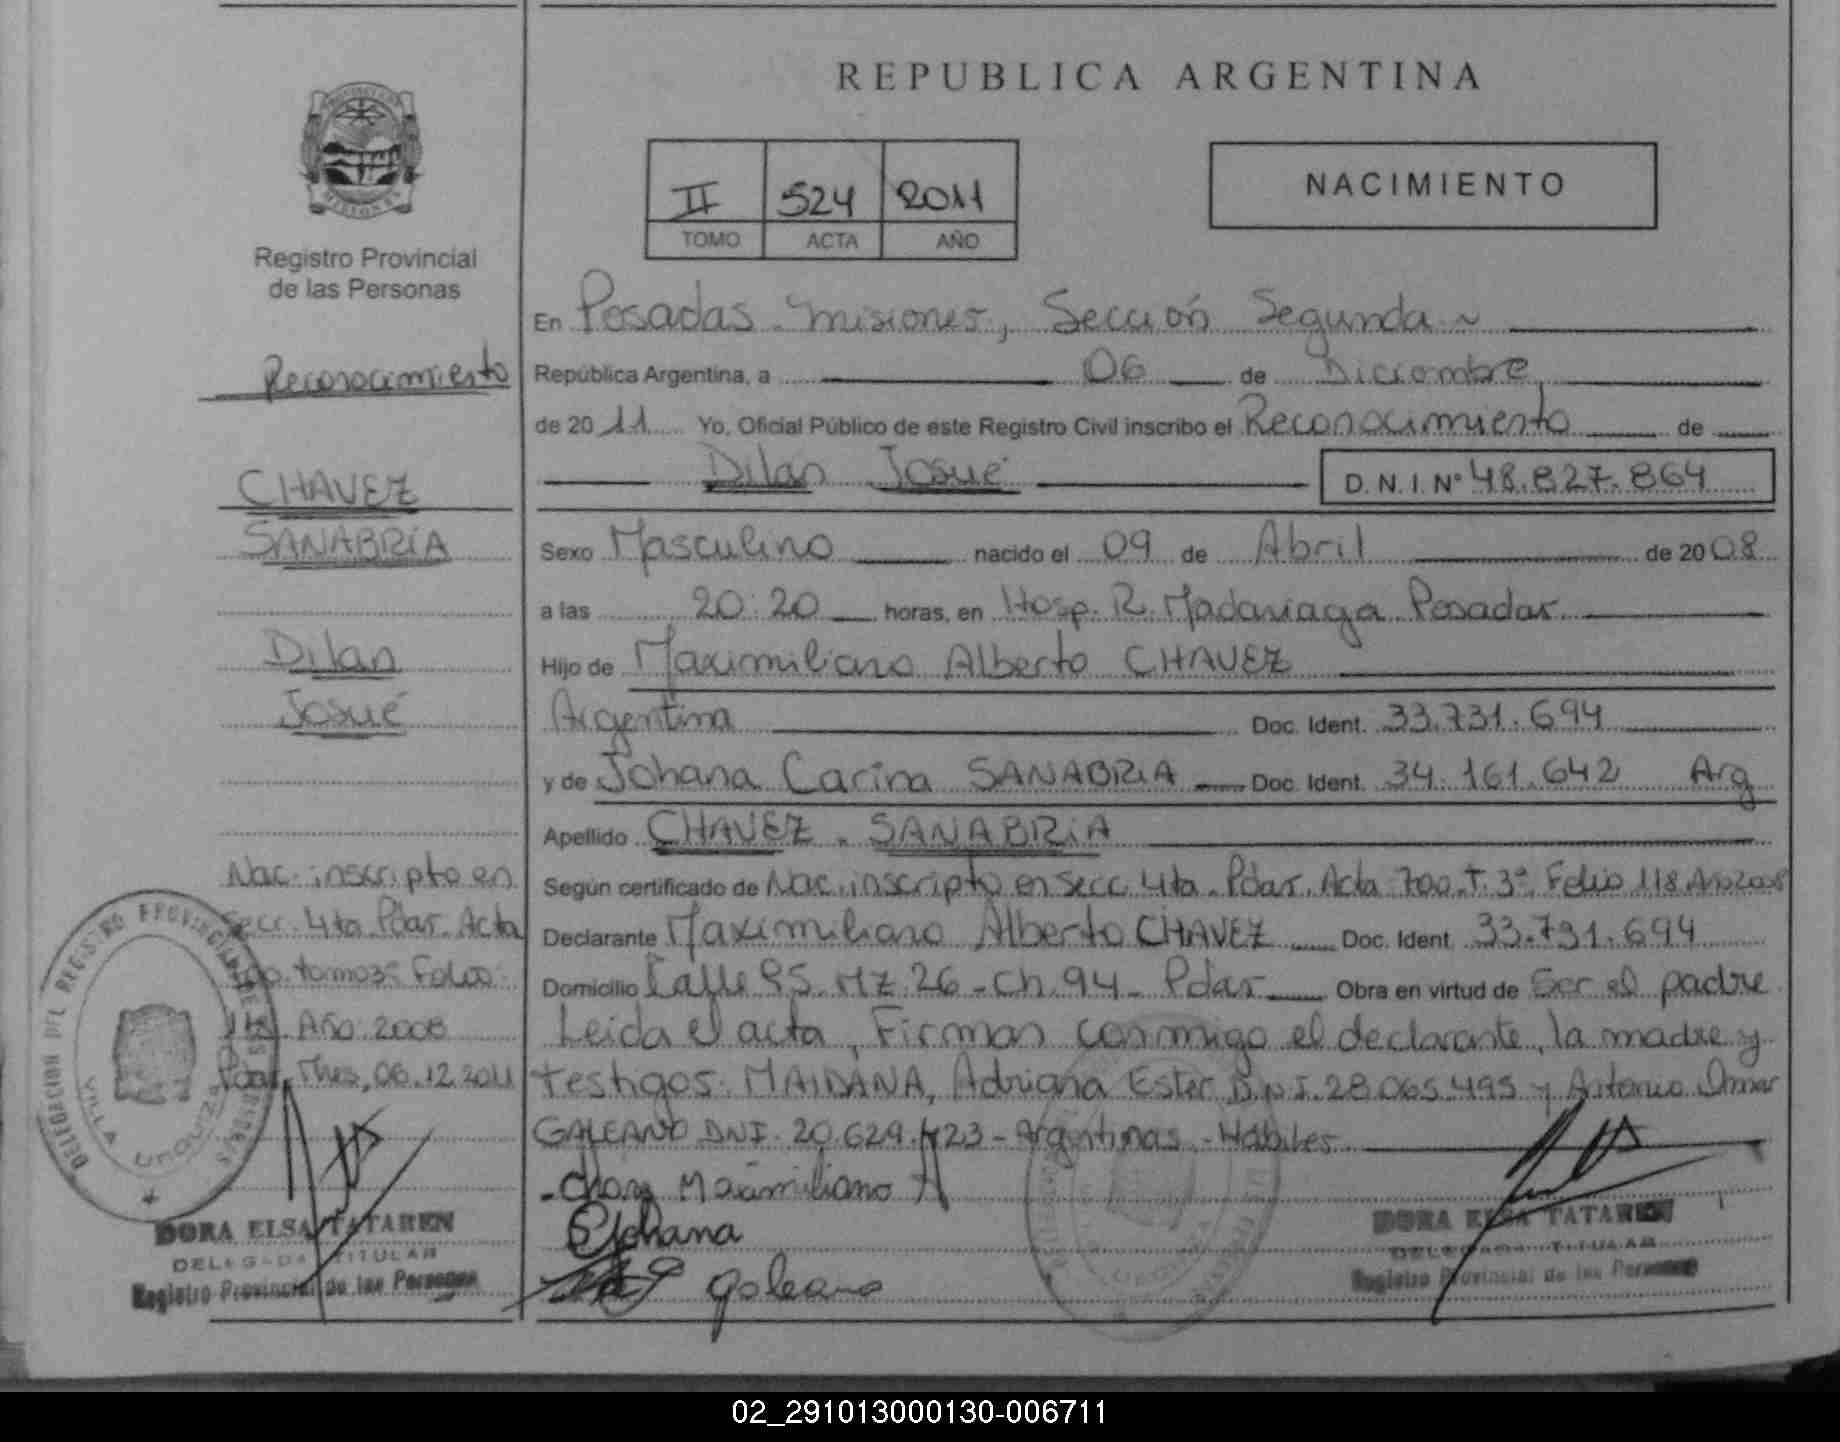 REPUBLICA ARGENTINA
PROVINCIA DE
MISIONES
Registro Provincial
de las Personas
II 524 2011
TOMO ACTA AÑO
NACIMIENTO
Reconocimiento
CHAVEZ
SANABRIA
Dilan
Josué
Nac. inscripto en
Secc. 4ta Pdas. Acta
tomo 3º Folio
Año 2008
Pdas, Mnes, 06.12.2011
DELEGACION DEL REGISTRO PROVINCIAL DE LAS PERSONAS
VILLA URQUIZA
DORA ELSA TATAREN
DELEGADA TITULAR
Registro Provincial de las Personas
En Posadas - Misiones, Sección Segunda ~
República Argentina, a 06 de Diciembre,
de 2011 Yo, Oficial Público de este Registro Civil inscribo el Reconocimiento de
Dilan Josué D. N. I. Nº 48.827.864
Sexo Masculino nacido el 09 de Abril de 2008
a las 20:20 horas, en Hosp. R. Madariaga Posadas
Hijo de Maximiliano Alberto CHAVEZ
Argentina Doc. Ident. 33.731.694
y de Johana Carina SANABRIA Doc. Ident. 34.161.642 Arg
Apellido CHAVEZ - SANABRIA
Según certificado de Nac. inscripto en Secc. 4ta. Pdas. Acta 700. T. 3º Folio 118 Año 2008
Declarante Maximiliano Alberto CHAVEZ Doc. Ident. 33.731.694
Domicilio Calle 95. Mz. 26 - Ch. 94 - Pdas Obra en virtud de Ser el padre
Leida el acta, Firman conmigo el declarante, la madre y
testigos: MAIDANA, Adriana Ester D.N.I. 28.065.495 y Antonio Omar
GALEANO DNI. 20.629.423 - Argentinos - Hábiles
Maximiliano A
Johana
Galeano
DORA ELSA TATAREN
DELEGADA TITULAR
Registro Provincial de las Personas
02_291013000130-006711